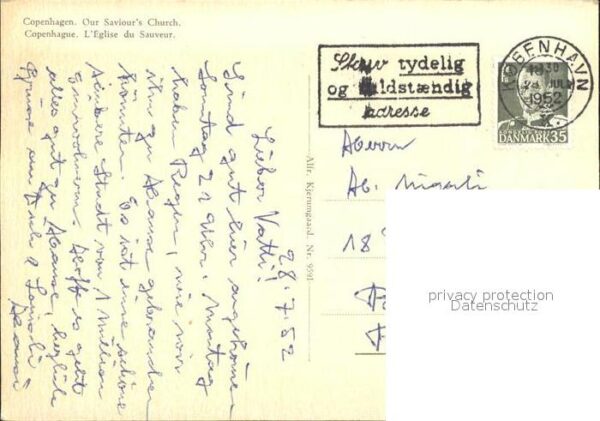 Copenhagen. Our Saviour's Church.
Copenhague. L'Eglise du Sauveur.
Skriv tydelig
og fuldstændig
adresse
KØBENHAVN
1952
DANMARK 35
28.7.52
Lieber Vatti!
Sind gut hier angekommen
Sonntag 21 Uhr. Montag
haben Regen, wie wir
ihn zu Hause gebrauchen
könnten. Es ist eine schöne
saubere Stadt von 1 Million
Einwohnern. Hoffe es geht
alles gut zu Hause, herzliche
Grüsse
Alfr. Kjærumgaard. Nr. 9591
Herrn
18
privacy protection
Datenschutz